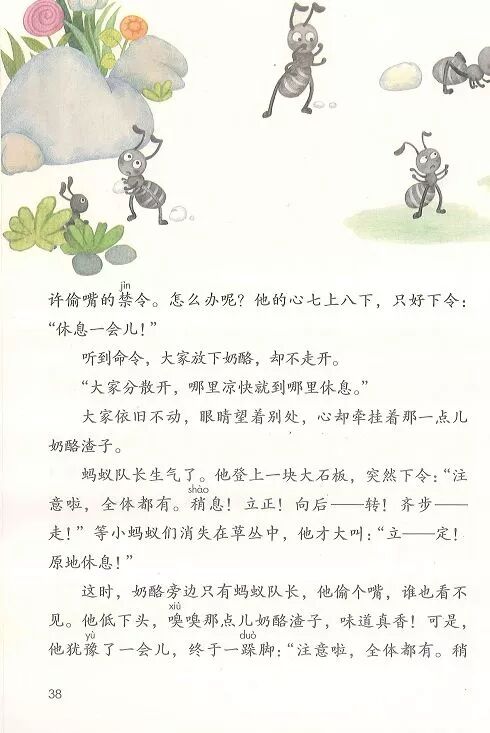 jīn
许偷嘴的禁令。怎么办呢？他的心七上八下，只好下令：
“休息一会儿！”
听到命令，大家放下奶酪，却不走开。
“大家分散开，哪里凉快就到哪里休息。”
大家依旧不动，眼睛望着别处，心却牵挂着那一点儿
奶酪渣子。
蚂蚁队长生气了。他登上一块大石板，突然下令：“注
shào
意啦，全体都有。稍息！立正！向后——转！齐步——
走！”等小蚂蚁们消失在草丛中，他才大叫：“立——定！
原地休息！”
这时，奶酪旁边只有蚂蚁队长，他偷个嘴，谁也看不
xiù
见。他低下头，嗅嗅那点儿奶酪渣子，味道真香！可是，
yù duò
他犹豫了一会儿，终于一跺脚：“注意啦，全体都有。稍
38